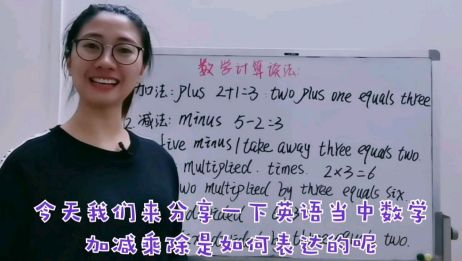 数学计算读法:
加法: plus 2+1=3 two plus one equals three
2.减法: minus 5-2=3
five minus/take away three equals two.
multiplied. times. 2×3=6
two multiplied by three equals six
今天我们来分享一下英语当中数学
加减乘除是如何表达的呢
two.